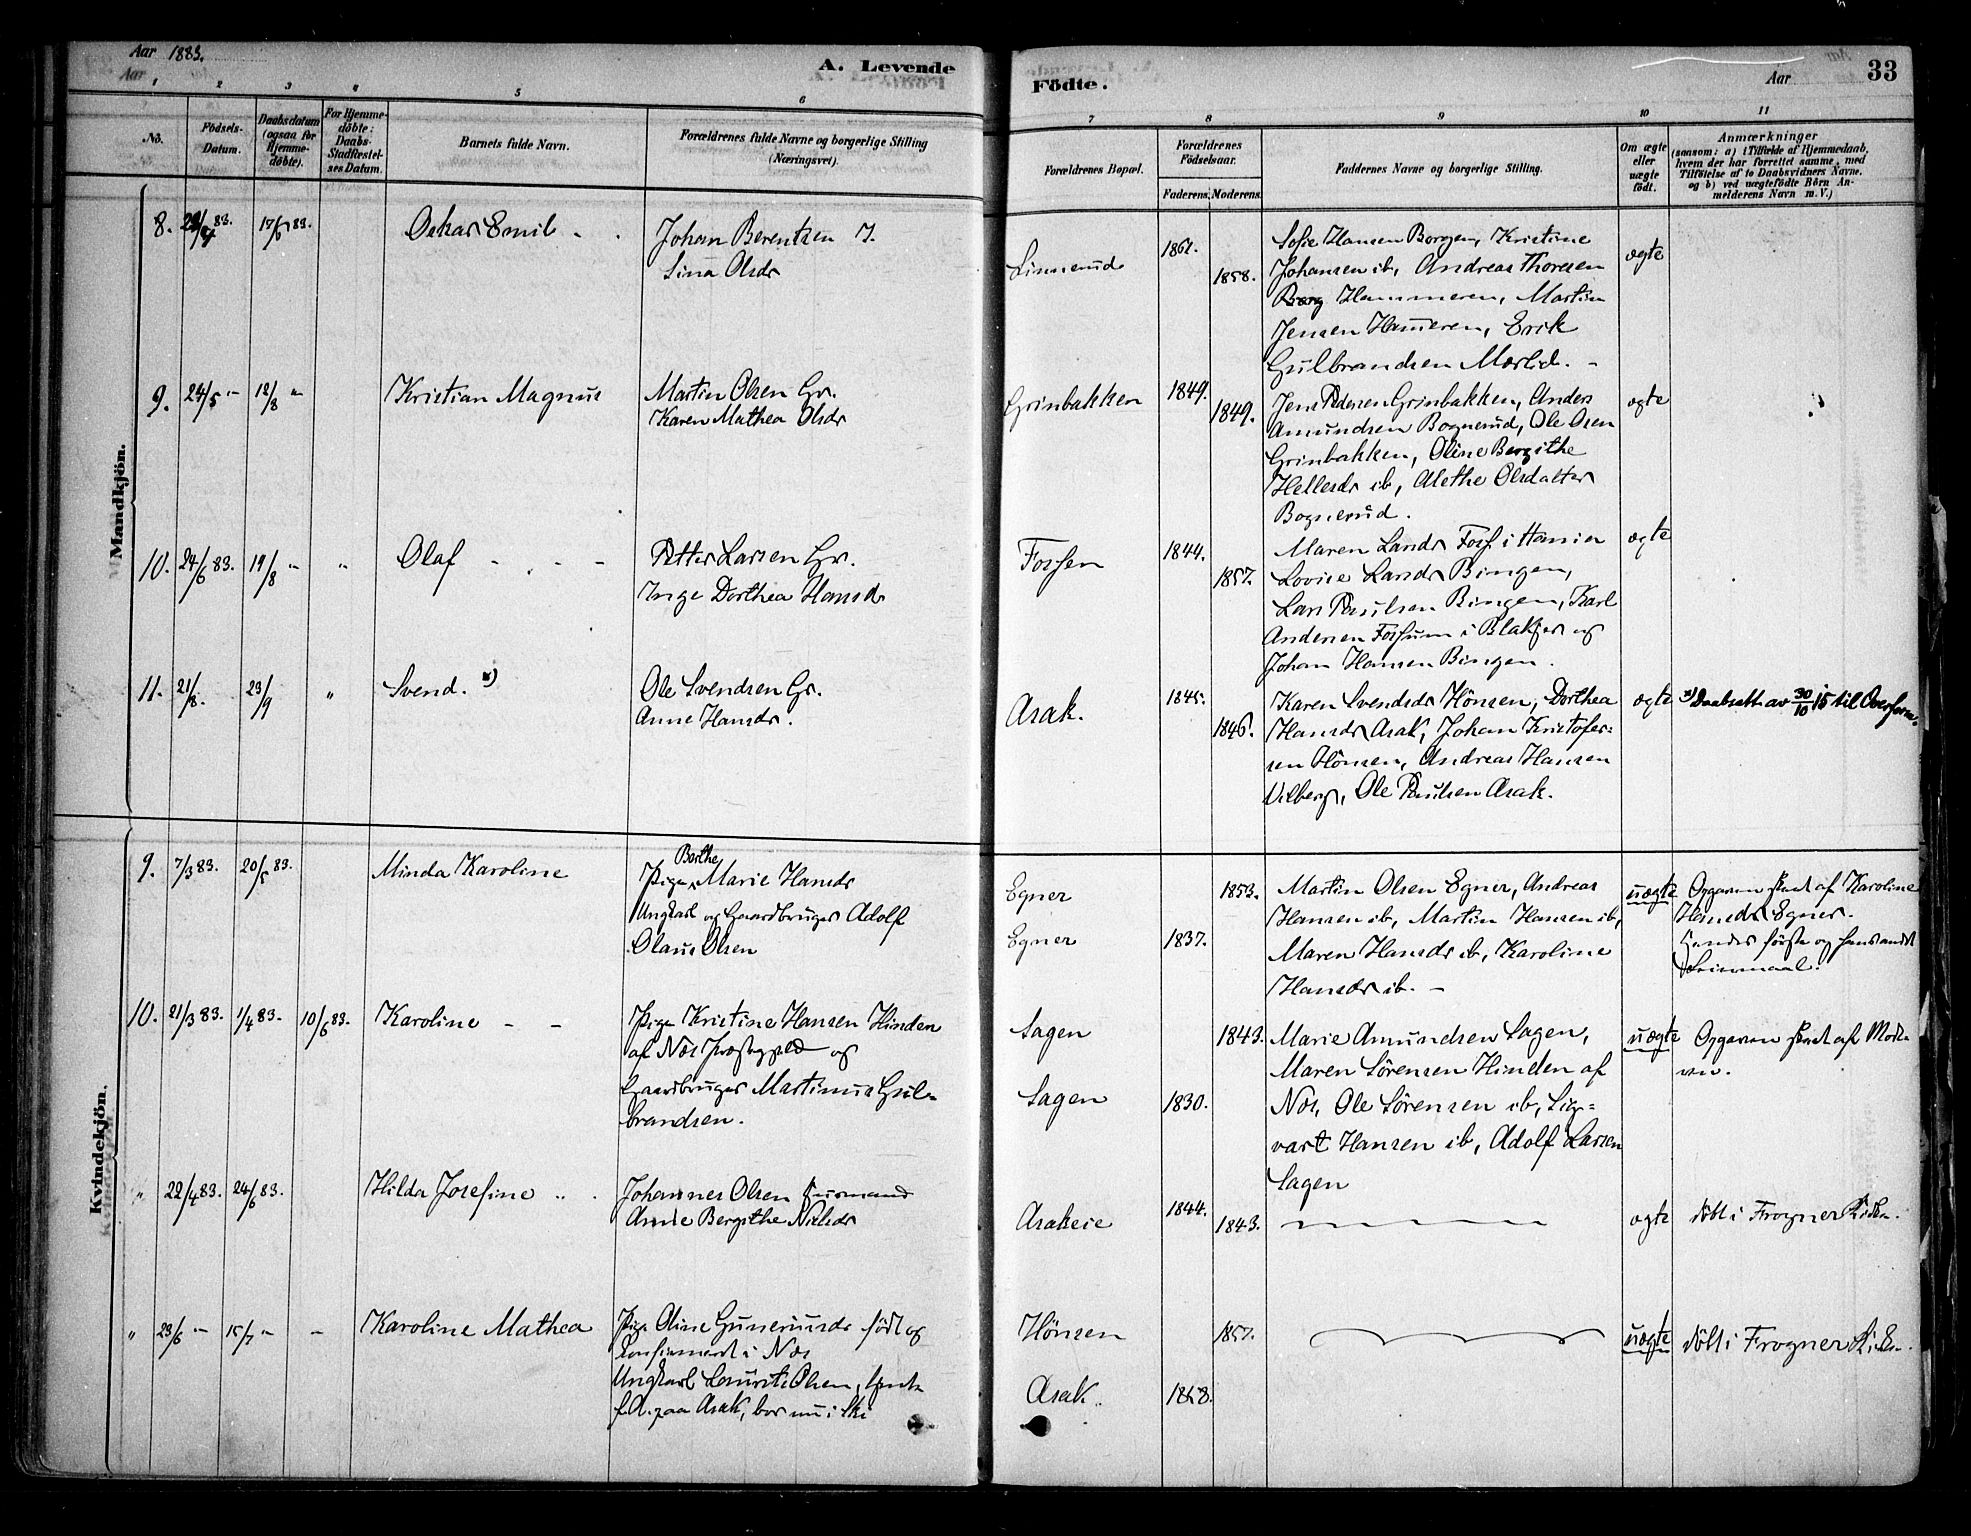 Aar 1883.
A. Levende
Födte.
Aar
33
1
2
3
4
5
6
7
8
9
10
11
No.
Födsels-
Datum.
Daabsdatum
(ogsaa for
Hjemme-
döbte).
For Hjemme-
döbte:
Daabs-
Stadfæstel-
ses Datum.
Barnets fulde Navn.
Forældrenes fulde Navne og borgerlige Stilling
(Næringsvei).
Forældrenes Bopæl.
Forældrenes
Födselsaar.
Faderens.
Moderens.
Faddernes Navne og borgerlige Stilling.
Om ægte
eller
uægte
födt.
Anmærkninger
(saasom: a) i Tilfælde af Hjemmedaab,
hvem der har forrettet samme, med
Tilföielse af to Daabsvidners Navne.
og b) ved uægtefödte Börn An-
melderens Navn m. V.)
Mandkjön.
8.
17/6 83.
Oskar Emil
Johan Berentsen I.
Lina Olsdr
Linnerud
1858.
Sofie Hansen Borgen, Kristine
Johansen ib, Andreas Thoresen
Borg Hammeren, Martin
Jensen Hameren, Erik
Gulbrandsen Mærlid.
ægte
9.
24/5 "
12/8 "
Kristian Magnus
Martin Olsen Gr.
Karen Mathea Olsdr
Grinbakken
1849.
1849.
Jens Pedersen Grinbakken, Anders
Amundsen Bognerud, Ole Osen
Grinbakken, Oline Bergithe
Hellesdr ib, Alethe Olsdatter
Bognerud.
ægte
10.
24/6 83.
19/8 "
"
Olaf
Petter Larsen Gr.
Inge Dorthea Hansd
Fossen
1844.
1857.
Maren Larsdr Foss i
Lovise Larsdr Bingen,
Lars Paulsen Bingen, Karl
Andersen Fossum i Blakjer og
Johan Hansen Bingen.
ægte
11.
21/8.
23/9
"
Svend. x)
Ole Svendsen Gr.
Anne Hansdr.
Asak.
1845.
1846.
Karen Svendsdr Hönsen, Dorthea
Hansdr Asak, Johan Kristofer=
sen Hönsen, Andreas Hansen
Vilberg, Ole Paulsen Asak.
ægte
x) Daabsatt. av 30/10 15 til Overform.
Kvindekjön.
9.
7/3 83.
20/5 83.
Minda Karoline
Berthe
Pige Marie Hansdr
Ungkarl og Gaardbruger Adolf
Olaus Olsen
Egner
Egner
1853.
1837.
Martin Olsen Egner, Andreas
Hansen ib, Martin Hansen ib,
Maren Hansdr ib, Karoline
Hansdr ib.
uægte
Opgaven skeet af Karoline
Hansdr Egner.
Hendes første og hans andet
Leiermaal.
10.
21/3 83.
1/4 83.
10/6 83.
Karoline
Pige Kristine Hansen Hinden
af Næs Præstegjeld og
Gaardbruger Martinus Gul=
brandsen.
Sagen
Sagen
1843.
1830.
Marie Amundsen Sagen,
Maren Sörensen Hinden af
Næs, Ole Sörensen ib, Sig=
vart Hansen ib, Adolf Larsen
Sagen
uægte
Opgaven skeet af Mode-
ren.
"
22/4 83.
24/6 83.
Hilda Josefine
Johannes Olsen Husmand
Anne Bergithe Nielsdr
Asakeie
1844.
1843.
ægte
döbt i Frogner Kirke.
"
23/6 "
15/7 "
Karoline Mathea
Pige Oline Guneriusdr född og
konfirmeret i Næs
Ungkarl Laurits Olsen,
f. A. paa Asak, bor nu i Ski
Hönsen
Asak.
1857.
1858.
uægte
döbt i Frogner Kirke.